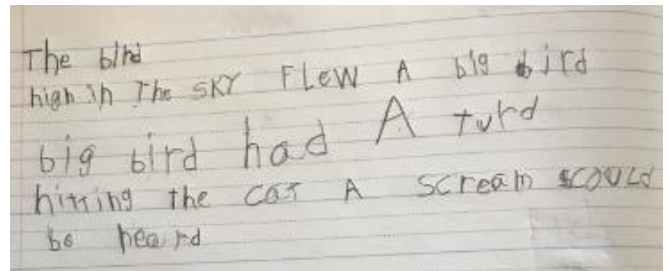 The bird
high in The SKY FLEW A big bird
big bird had A turd
hitting the cat A scream COULD
be heard